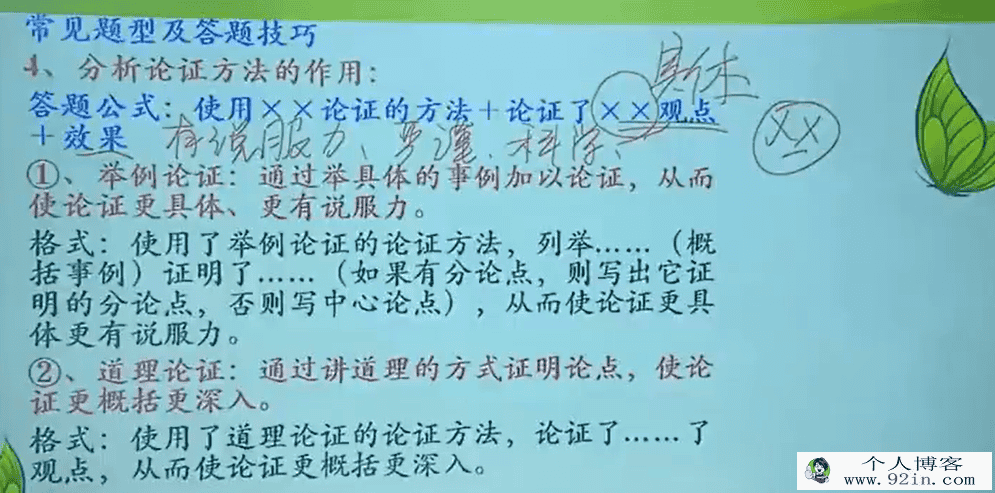 常见题型及答题技巧
4、分析论证方法的作用：
具体
答题公式：使用××论证的方法＋论证了××观点
××
＋效果 有说服力、严谨、科学、
①、举例论证：通过举具体的事例加以论证，从而
使论证更具体、更有说服力。
格式：使用了举例论证的论证方法，列举……（概
括事例）证明了……（如果有分论点，则写出它证
明的分论点，否则写中心论点），从而使论证更具
体更有说服力。
②、道理论证：通过讲道理的方式证明论点，使论
证更概括更深入。
格式：使用了道理论证的论证方法，论证了……了
观点，从而使论证更概括更深入。
个人博客
www.92in.com